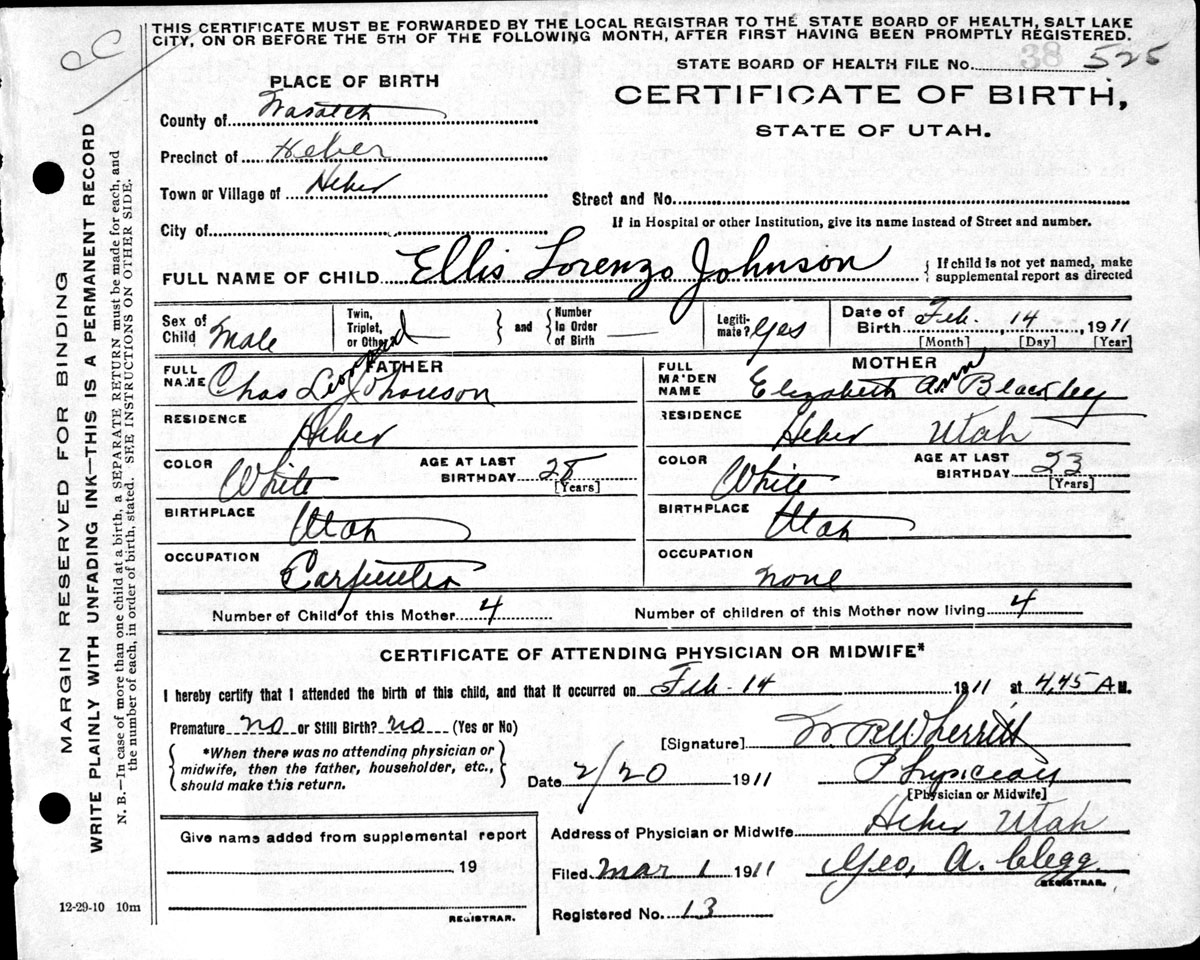 THIS CERTIFICATE MUST BE FORWARDED BY THE LOCAL REGISTRAR TO THE STATE BOARD OF HEALTH, SALT LAKE
CITY, ON OR BEFORE THE 5TH OF THE FOLLOWING MONTH, AFTER FIRST HAVING BEEN PROMPTLY REGISTERED.
38
STATE BOARD OF HEALTH FILE No. 525
PLACE OF BIRTH
CERTIFICATE OF BIRTH,
STATE OF UTAH.
County of Wasatch
Precinct of Heber
Town or Village of Heber
Street and No.
City of
If in Hospital or other Institution, give its name instead of Street and number.
FULL NAME OF CHILD Ellis Lorenzo Johnson { If child is not yet named, make
supplemental report as directed
Sex of Child Male
Twin, Triplet, or Other } and { Number In Order of Birth
Legiti-mate? Yes
Date of Birth Feb. 14, 1911
[Month] [Day] [Year]
FATHER
MOTHER
FULL NAME Chas Leonard Johnson
FULL MAIDEN NAME Elizabeth Ann Blackley
RESIDENCE Heber
RESIDENCE Heber Utah
COLOR White AGE AT LAST BIRTHDAY 28 [Years]
COLOR White AGE AT LAST BIRTHDAY 23 [Years]
BIRTHPLACE Utah
BIRTHPLACE Utah
OCCUPATION Carpenter
OCCUPATION none
Number of Child of this Mother 4 Number of children of this Mother now living 4
CERTIFICATE OF ATTENDING PHYSICIAN OR MIDWIFE*
I hereby certify that I attended the birth of this child, and that it occurred on Feb - 14 1911 at 4,45 A M.
Premature no or Still Birth? no (Yes or No)
{ *When there was no attending physician or
midwife, then the father, householder, etc.,
should make this return. }
[Signature] W. R Wherritt
Date 2/20 1911 Physician
[Physician or Midwife]
Give name added from supplemental report
19
REGISTRAR.
Address of Physician or Midwife Heber Utah
Filed Mar 1 1911 Geo, A. Clegg.
REGISTRAR.
Registered No. 13
12-29-10 10m
MARGIN RESERVED FOR BINDING
WRITE PLAINLY WITH UNFADING INK—THIS IS A PERMANENT RECORD
N. B.—In case of more than one child at a birth, a SEPARATE RETURN must be made for each, and
the number of each, in order of birth, stated. SEE INSTRUCTIONS ON OTHER SIDE.